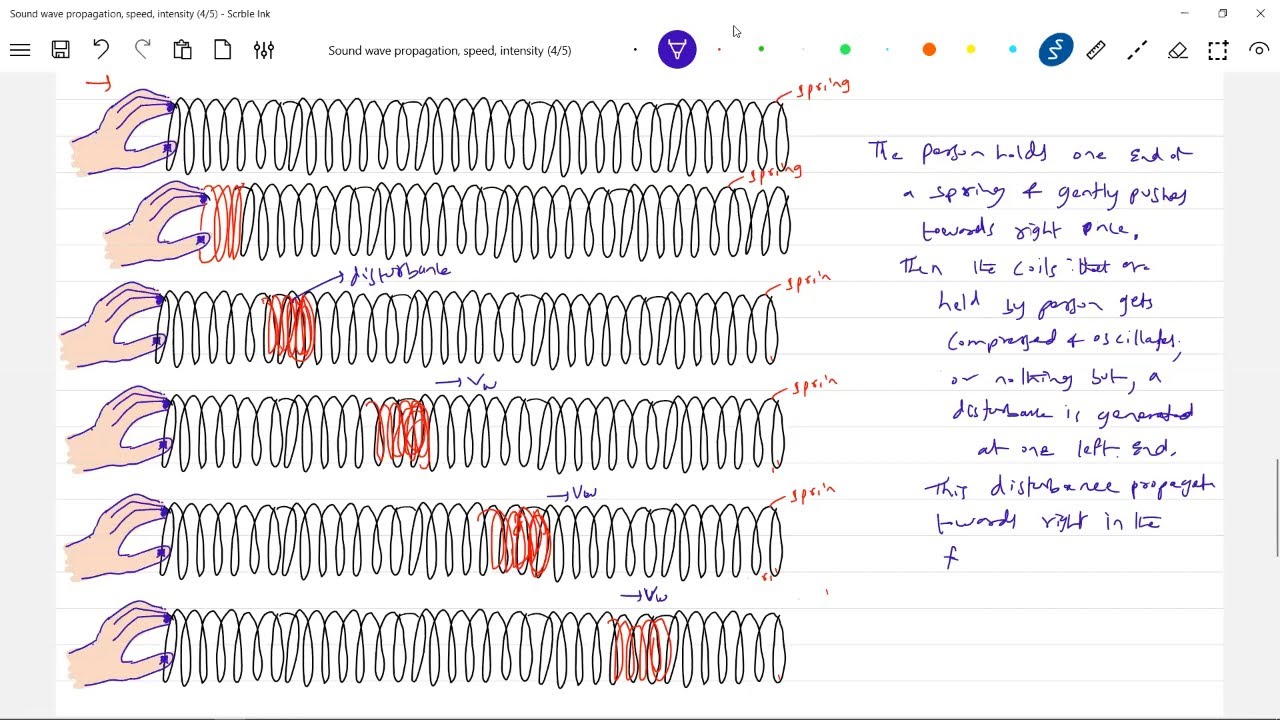 Sound wave propagation, speed, intensity (4/5) - Scrble Ink
Sound wave propagation, speed, intensity (4/5)
spring
spring
disturbance
sprin
Vw
sprin
Vw
sprin
Vw
The person holds one end of
a spring & gently pushes
towards right once.
Then the coils that are
held by person gets
compressed & oscillates,
or nothing but, a
disturbance is generated
at one left end.
This disturbance propagates
towards right in the
f